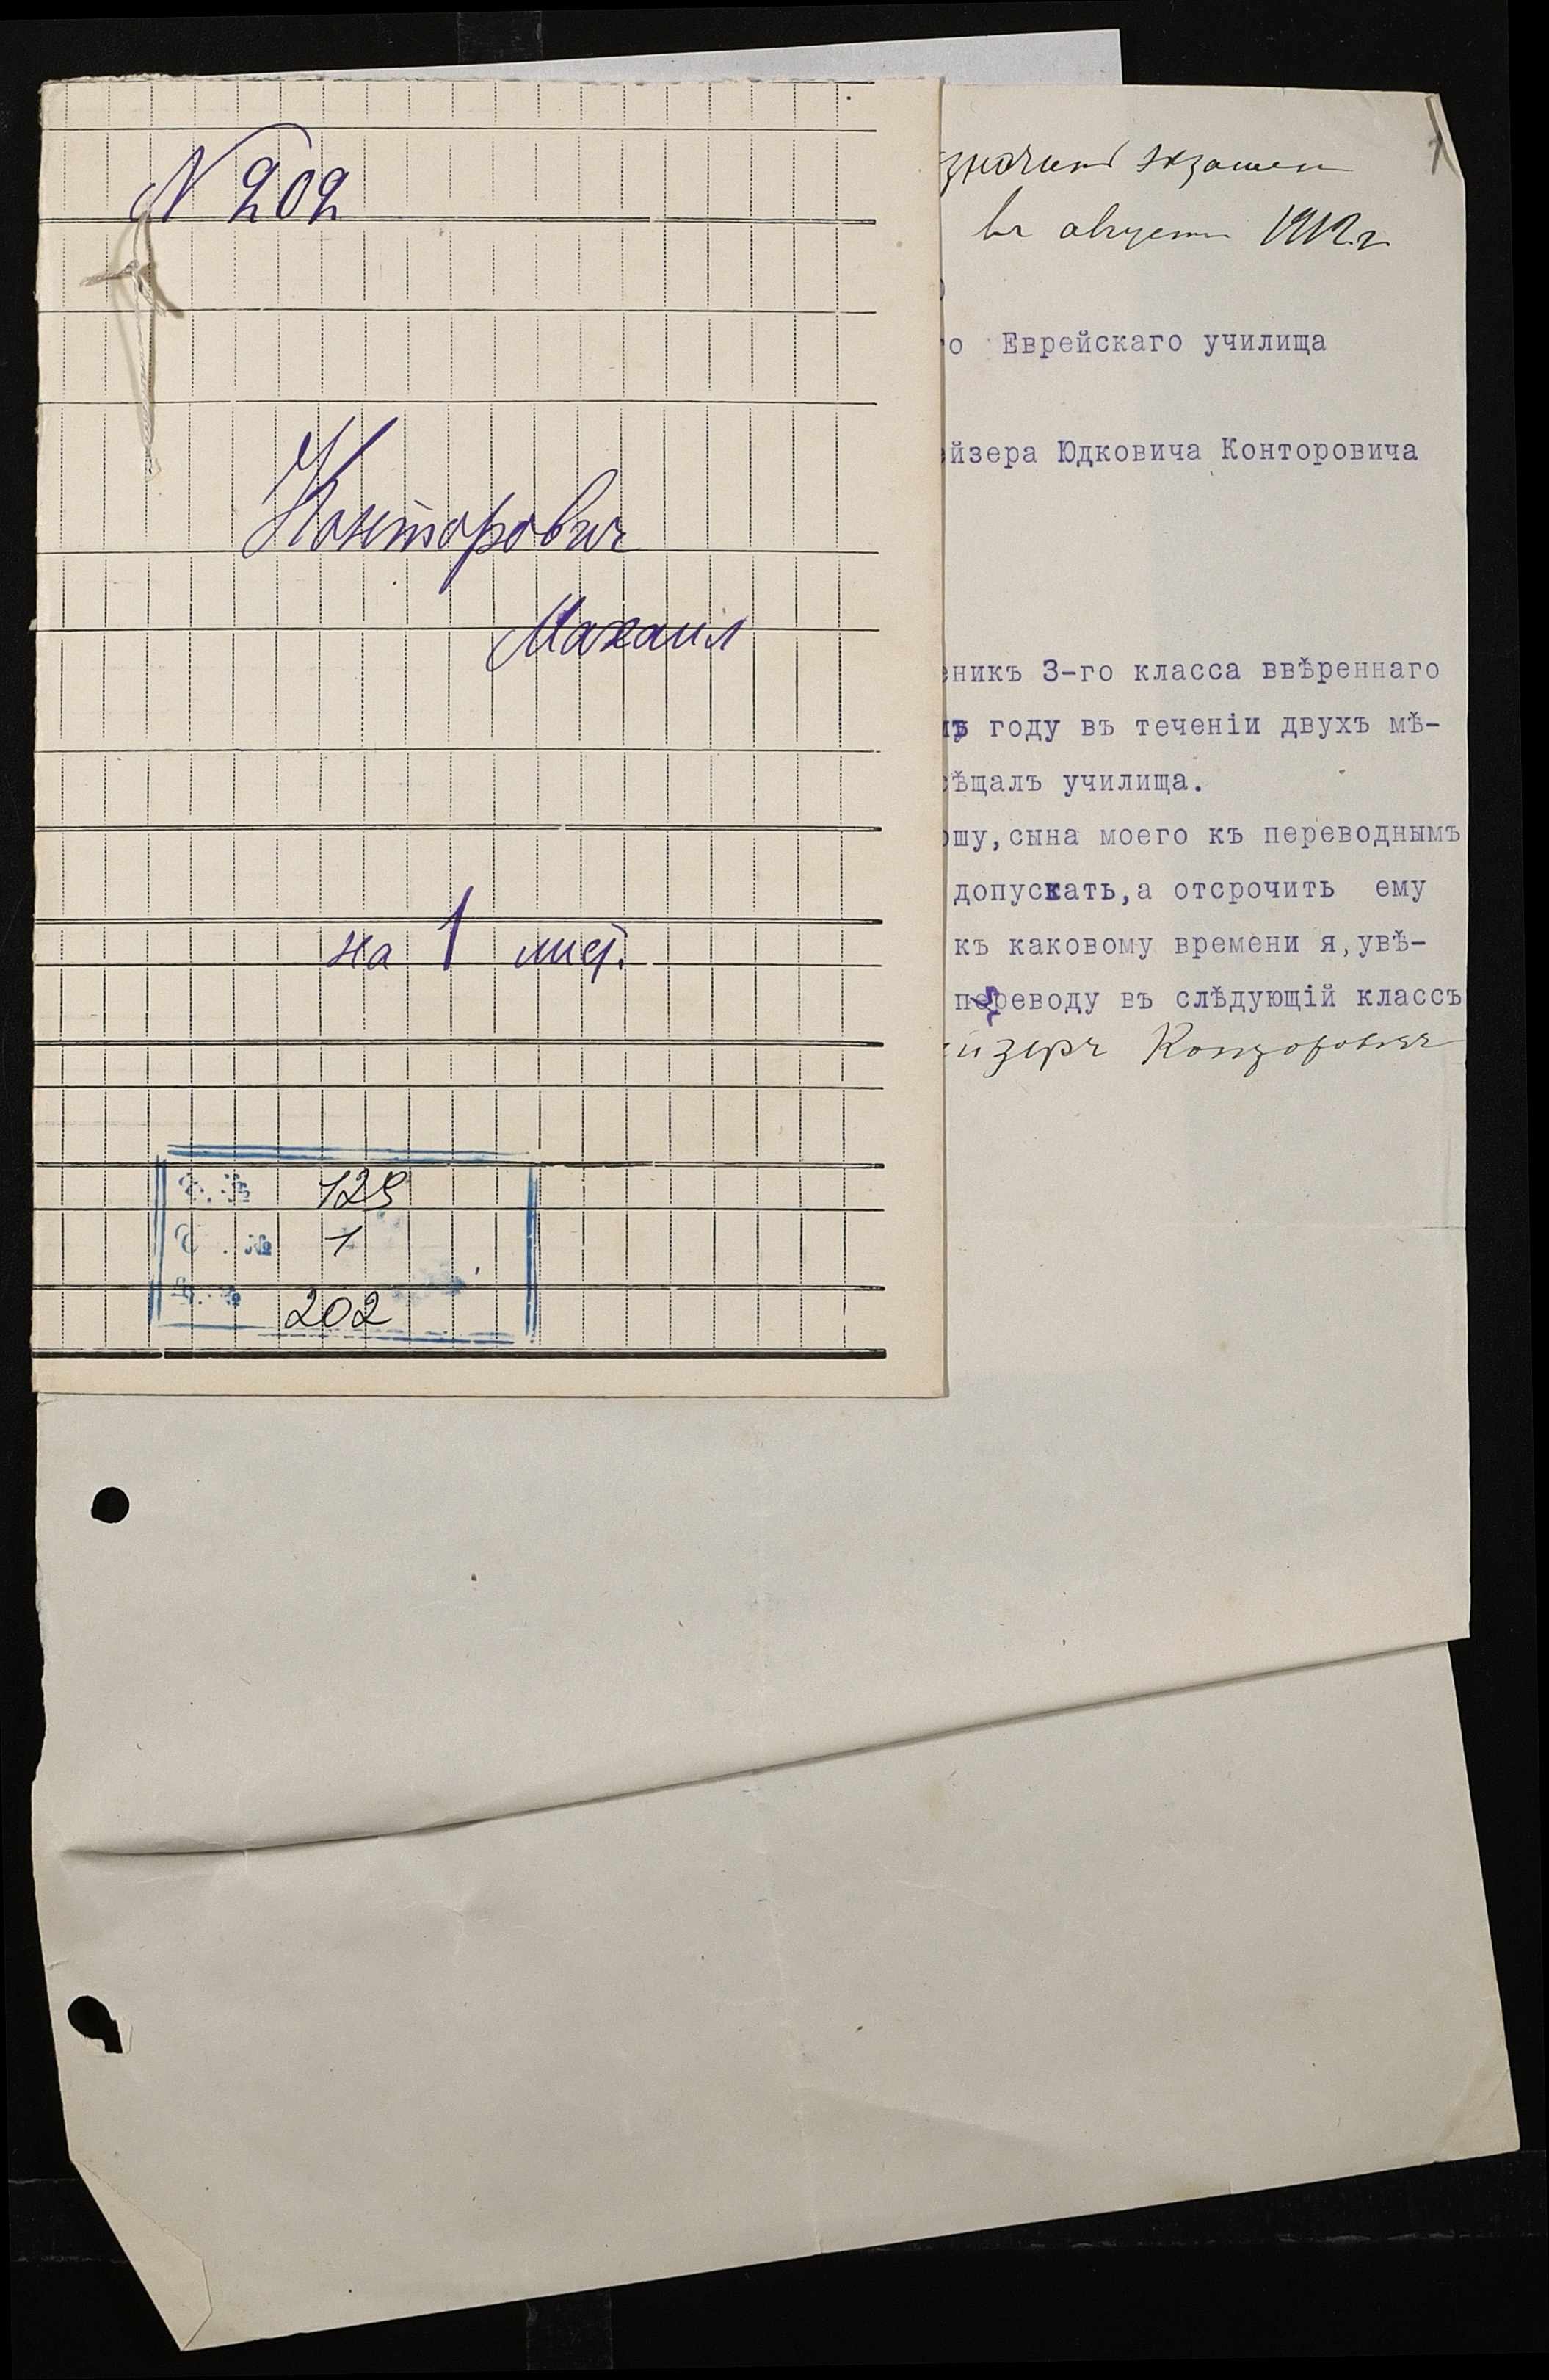 N 202
Конторович
Михаил
на 1 лист.
Ф. № 129
О. № 1
Д. № 202
1
экзамен
въ августѣ 1912 г
о Еврейскаго училища
йзера Юдковича Конторовича
еникъ 3-го класса ввѣреннаго
году въ теченіи двухъ мѣ-
ѣщалъ училища.
ошу, сына моего къ переводнымъ
допускать, а отсрочить ему
къ каковому времени я, увѣ-
переводу въ слѣдующій классъ
йзеръ Конторовичъ